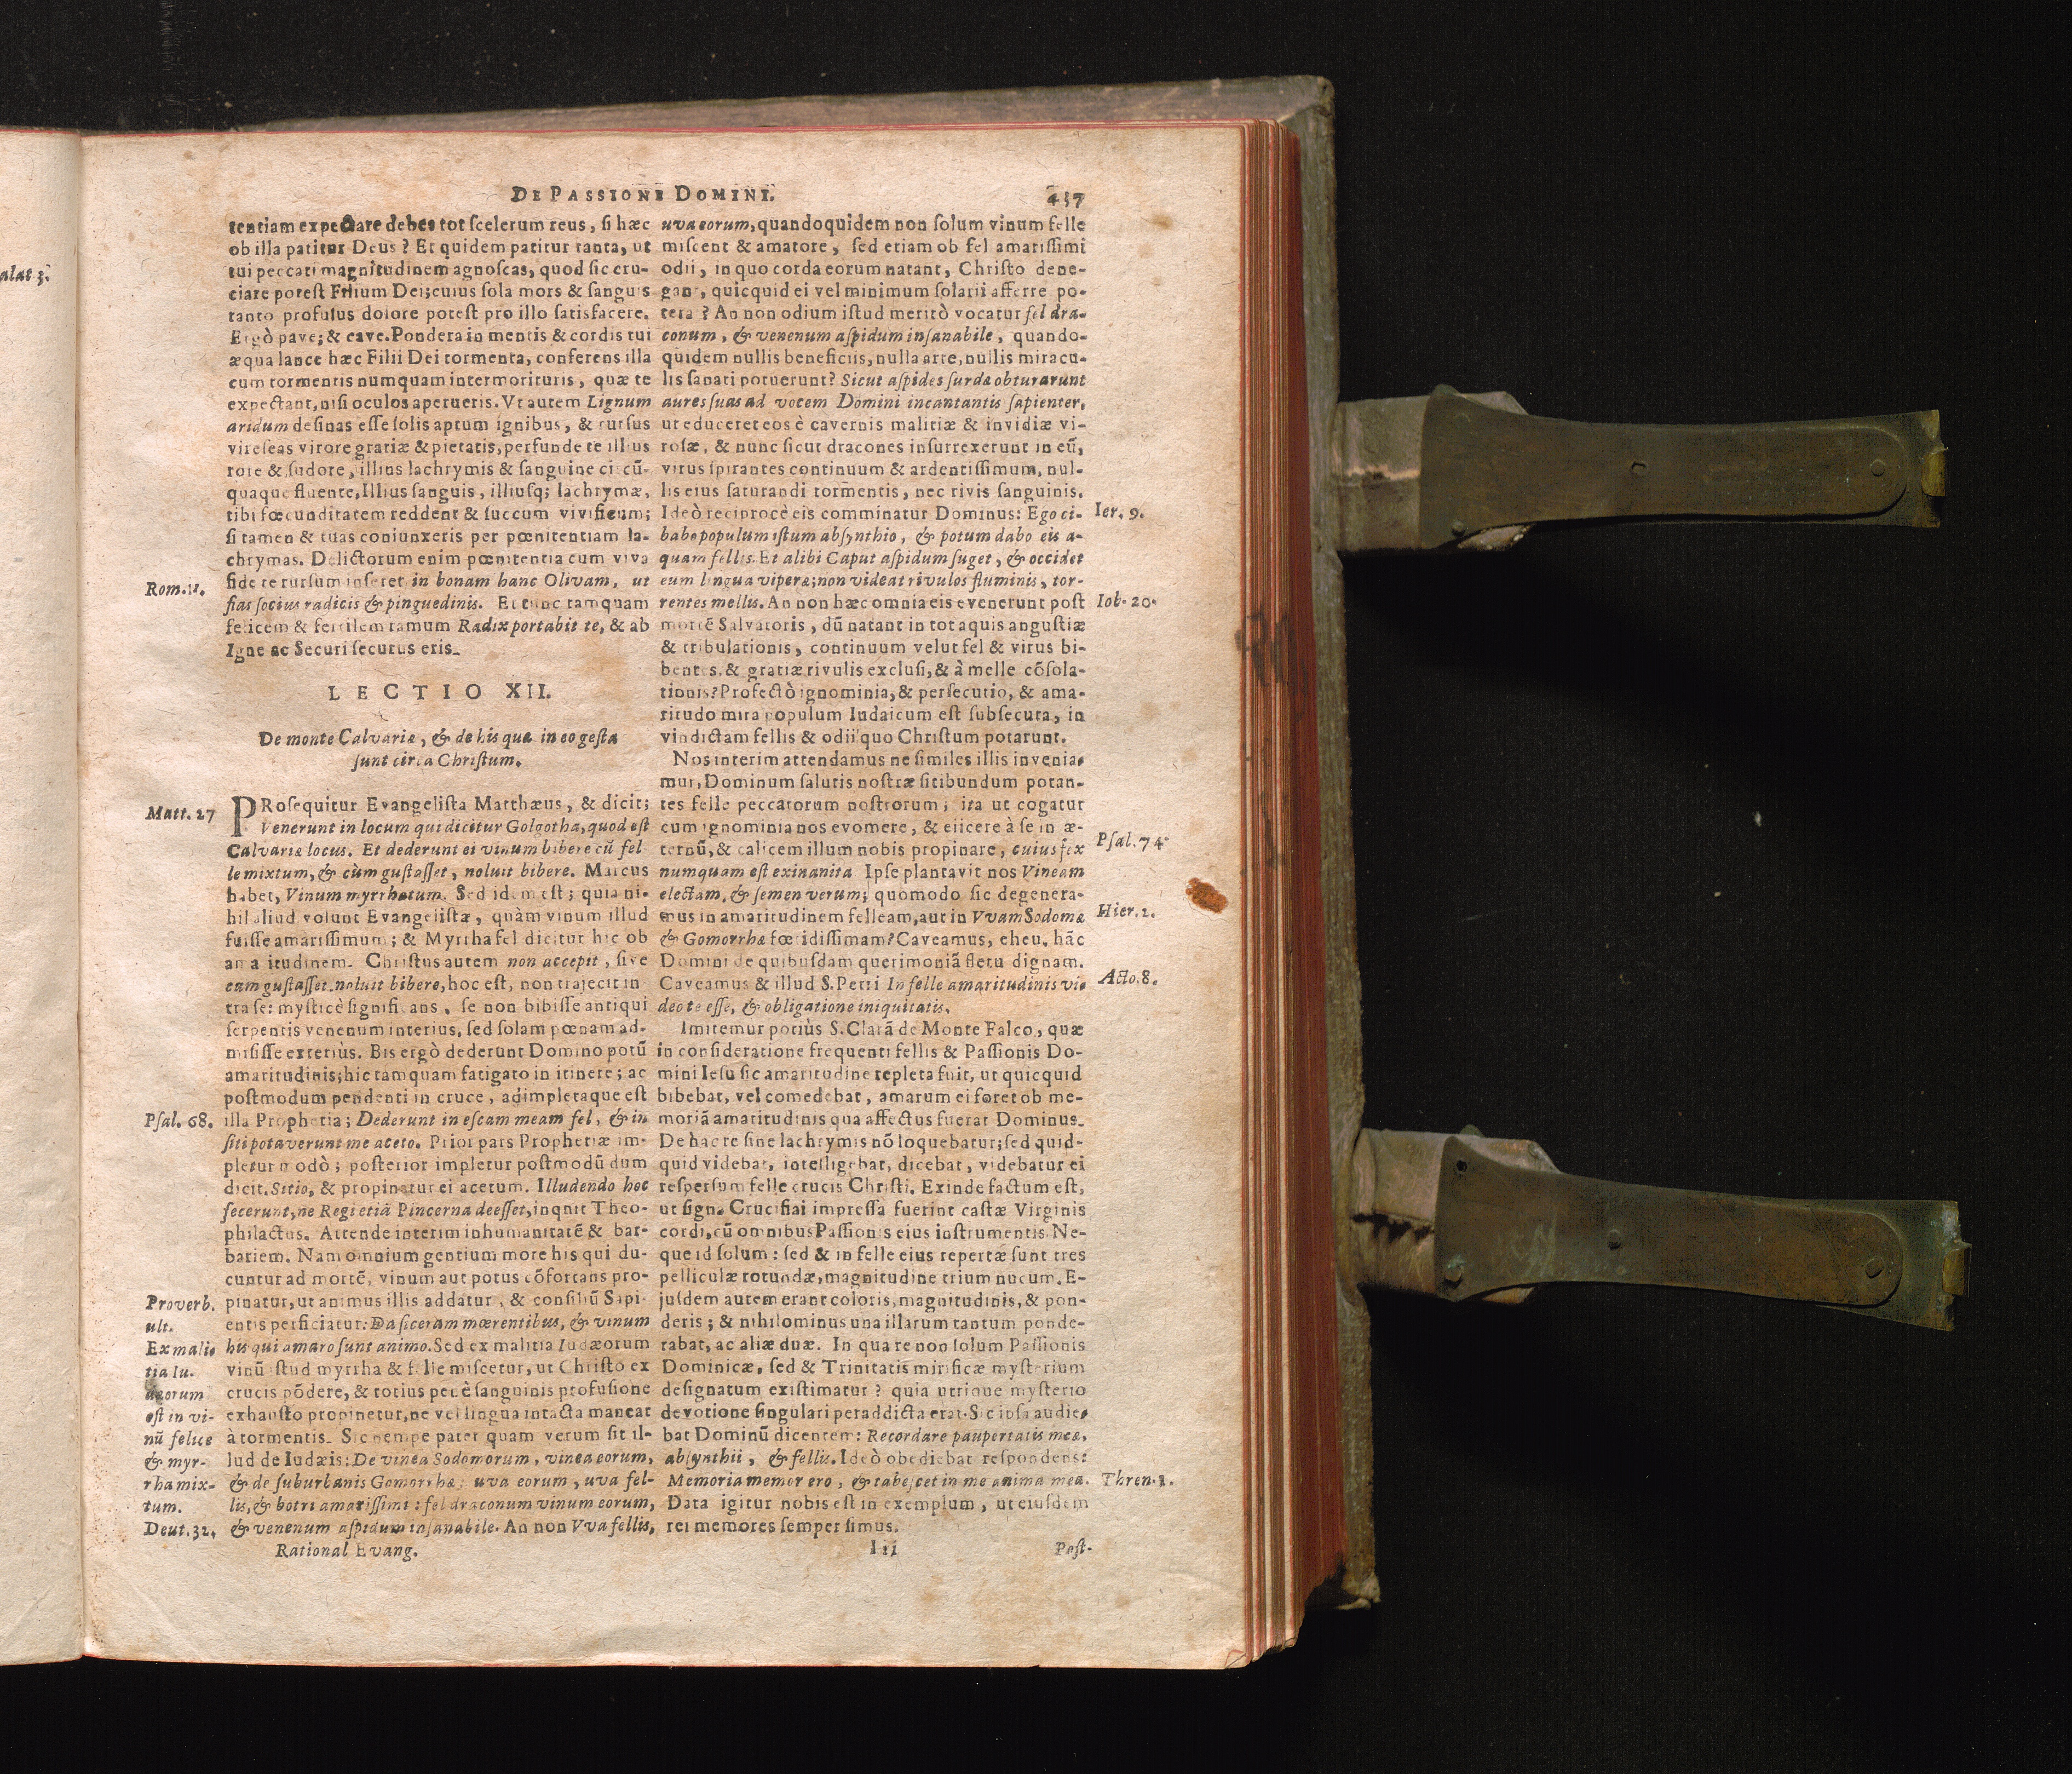 alat 3.
DE PASSIONE DOMINI.
437
tentiam expectare debes tot scelerum reus, si hæc
ob illa patitur Deus? Et quidem patitur tanta, ut
tui peccati magnitudinem agnoscas, quod sic cru-
ciare potest Filium Dei; cuius sola mors & sanguis
tanto profusus dolore potest pro illo satisfacere.
Ergò pave; & cave. Pondera in mentis & cordis tui
æqua lance hæc Filii Dei tormenta, conferens illa
cum tormentis numquam intermorituris, quæ te
expectant, nisi oculos aperueris. Vt autem Lignum
aridum desinas esse solis aptum ignibus, & rursus
vireseas virore gratiæ & pietatis, perfunde te illius
rore & sudore, illius lachrymis & sanguine circũ-
quaque fluente. Illius sanguis, illiusq; lachrymæ,
tibi fœcunditatem reddent & succum vivificum;
si tamen & tuas coniunxeris per pœnitentiam la-
chrymas. Delictorum enim pœnitentia cum viva
Rom. 11.
fide te rursum inseret in bonam hanc Olivam, ut
fias socius radicis & pinguedinis. Et tunc tamquam
felicem & fertilem ramum Radix portabit te, & ab
Igne ac Securi securus eris.
LECTIO XII.
De monte Calvariæ, & de his quæ in eo gesta
sunt circa Christum.
Matt. 27
PRosequitur Evangelista Matthæus, & dicit;
Venerunt in locum qui dicitur Golgotha, quod est
Calvariæ locus. Et dederunt ei vinum bibere cũ fel
le mixtum, & cùm gustasset, noluit bibere. Marcus
habet, Vinum myrrhatum. Sed idem est; quia ni-
hil aliud volunt Evangelistæ, quàm vinum illud
fuisse amarissimum; & Myrrha fel dicitur hic ob
amaritudinem. Christus autem non accepit, sive
cum gustasset noluit bibere, hoc est, non trajecit in
tra se: mysticè significans, se non bibisse antiqui
serpentis venenum interius, sed solam pœnam ad-
misisse exteriùs. Bis ergò dederunt Domino potũ
amaritudinis; hic tamquam fatigato in itinere; ac
postmodum pendenti in cruce, adimpletaque est
Psal. 68.
illa Prophetia; Dederunt in escam meam fel, & in
siti potaverunt me aceto. Prior pars Prophetiæ im-
pletur modò; posterior impletur postmodũ dum
dicit. Sitio, & propinatur ei acetum. Illudendo hoc
fecerunt, ne Regi etiã Pincerna deesset, inqnit Theo-
philactus. Attende interim inhumanitatẽ & bar-
bariem. Nam omnium gentium more his qui du-
cuntur ad mortẽ, vinum aut potus cõfortans pro-
Proverb.
ult.
pinatur, ut animus illis addatur, & consiliũ Sapi-
entis perficiatur: Da siceram mœrentibus, & vinum
Ex mali-
tia Iu-
dæorum
est in vi-
nũ felice
& myr-
rha mix-
tum.
his qui amaro sunt animo. Sed ex malitia Iudæorum
vinũ istud myrrha & felle miscetur, ut Christo ex
crucis põdere, & totius penè sanguinis profusione
exhausto propinetur, ne vel lingua intacta maneat
à tormentis. Sic nempe patet quam verum sit il-
lud de Iudæis: De vinea Sodomorum, vinea eorum,
& de suburbanis Gomorrhæ; uva eorum, uva fel-
lis, & botri amarissimi: fel draconum vinum eorum,
Deut. 32.
& venenum aspidum insanabile. An non Vva fellis,
Rational Evang.
uva eorum, quandoquidem non solum vinum felle
miscent & amarore, sed etiam ob fel amarissimi
odii, in quo corda eorum natant, Christo dene-
gant, quicquid ei vel minimum solatii afferre po-
tera? An non odium istud meritò vocatur fel dra-
conum, & venenum aspidum insanabile, quando-
quidem nullis beneficiis, nulla arte, nullis miracu-
lis sanati potuerunt? Sicut aspides surdæ obturarunt
aures suas ad vocem Domini incantantis sapienter,
ut educeret eos è cavernis malitiæ & invidiæ vi-
rosæ, & nunc sicut dracones insurrexerunt in eũ,
virus spirantes continuum & ardentissimum, nul-
lis eius saturandi tormentis, nec rivis sanguinis.
Ideò reciprocè eis comminatur Dominus: Ego ci-
Ier. 9.
babo populum istum absynthio, & potum dabo eis a-
quam fellis. Et alibi Caput aspidum suget, & occidet
eum lingua viperæ; non videat rivulos fluminis, tor-
rentes mellis. An non hæc omnia eis evenerunt post
Iob. 20.
mortẽ Salvatoris, dũ natant in tot aquis angustiæ
& tribulationis, continuum velut fel & virus bi-
bentes, & gratiæ rivulis exclusi, & à melle cõsola-
tionis? Profectò ignominia, & persecutio, & ama-
ritudo mira populum Iudaicum est subsecuta, in
vindictam fellis & odii quo Christum potarunt.
Nos interim attendamus ne similes illis invenia-
mur, Dominum salutis nostræ sitibundum potan-
tes felle peccatorum nostrorum; ita ut cogatur
cum ignominia nos evomere, & eiicere à se in æ-
ternũ, & calicem illum nobis propinare, cuius fex
Psal. 74
numquam est exinanita Ipse plantavit nos Vineam
electam, & semen verum; quomodo sic degenera-
mus in amaritudinem felleam, aut in Vvam Sodomæ
Hier. 2.
& Gomorrhæ fœtidissimam? Caveamus, eheu, hãc
Domini de quibusdam querimoniã fletu dignam.
Caveamus & illud S. Petri In felle amaritudinis vi-
Acto. 8.
deo te esse, & obligatione iniquitatis.
Imitemur potiùs S. Clarã de Monte Falco, quæ
in consideratione frequenti fellis & Passionis Do-
mini Iesu sic amaritudine repleta fuit, ut quicquid
bibebat, vel comedebat, amarum ei foret ob me-
moriã amaritudinis qua affectus fuerat Dominus.
De hac re sine lachrymis nõ loquebatur; sed quid-
quid videbat, intelligebat, dicebat, videbatur ei
respersum felle crucis Christi. Exinde factum est,
ut signa Crucifiai impressa fuerint castæ Virginis
cordi, cũ omnibus Passionis eius instrumentis. Ne-
que id solum: sed & in felle eius repertæ sunt tres
pelliculæ rotundæ, magnitudine trium nucum. E-
jusdem autem erant coloris, magnitudinis, & pon-
deris; & nihilominus una illarum tantum ponde-
rabat, ac aliæ duæ. In qua re non solum Passionis
Dominicæ, sed & Trinitatis mirificæ mysterium
designatum existimatur? quia utrique mysterio
devotione singulari peraddicta erat. Sic ipsa audie-
bat Dominũ dicentem: Recordare paupertatis meæ,
absynthii, & fellis. Ideò obediebat respondens:
Memoria memor ero, & tabescet in me anima mea.
Thren. 3.
Data igitur nobis est in exemplum, ut eiusdem
rei memores semper simus.
Iii
Post-